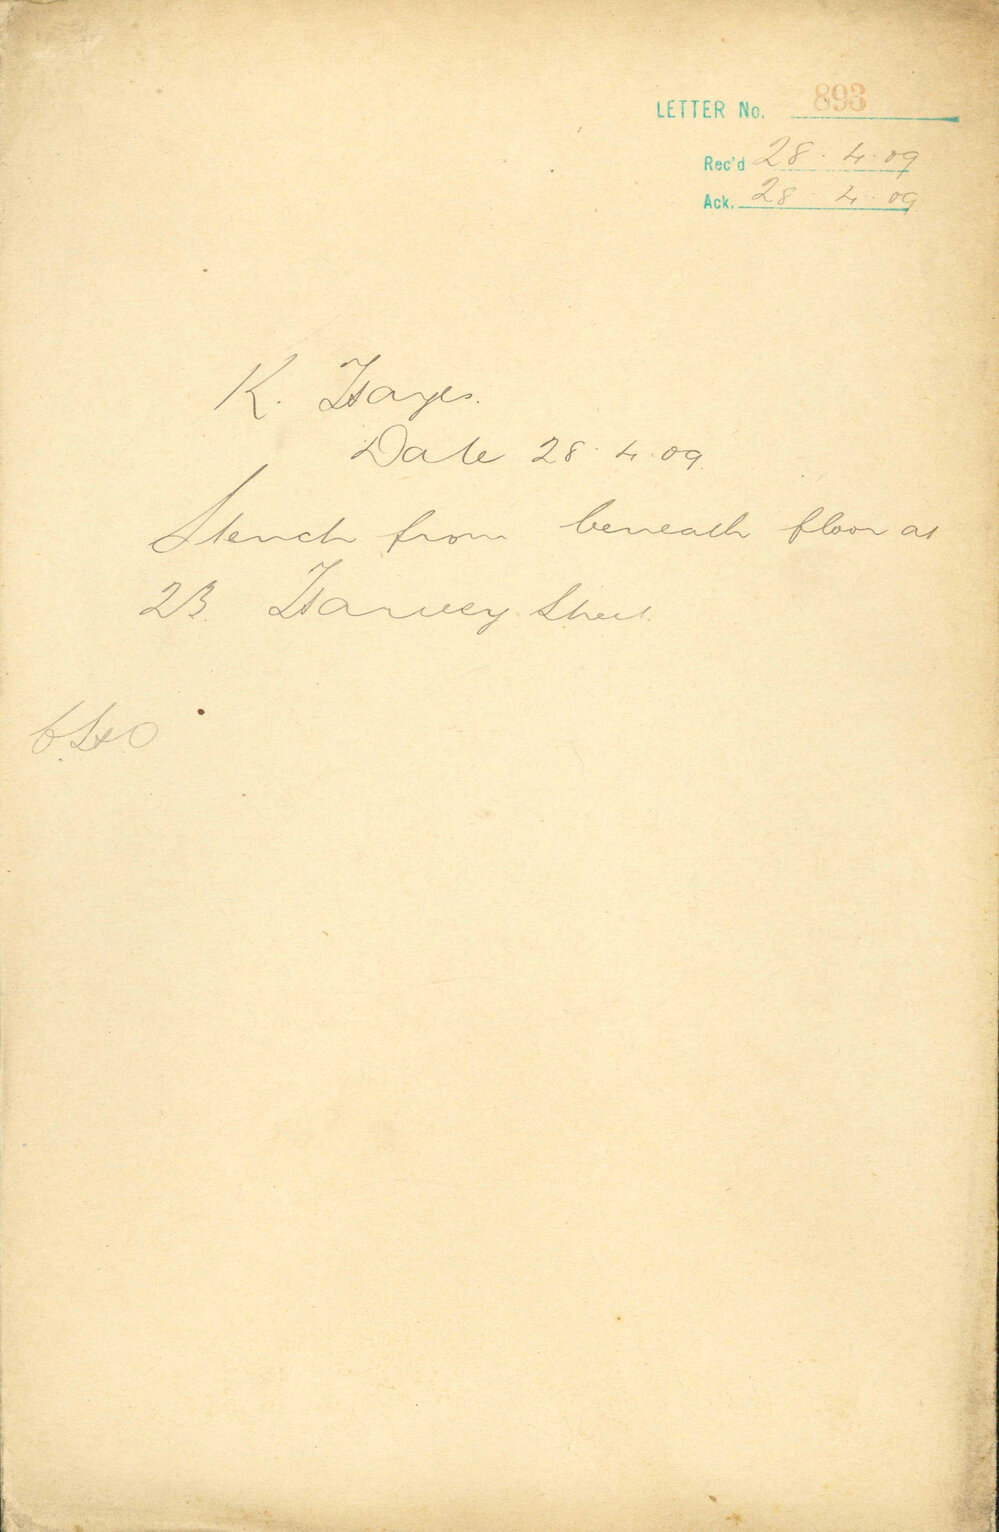 LETTER No. 893
Rec'd 28.4.09
Ack. 28.4.09
K. Hayes.
Date 28.4.09.
Stench from beneath floor at
23. Harvey Street.